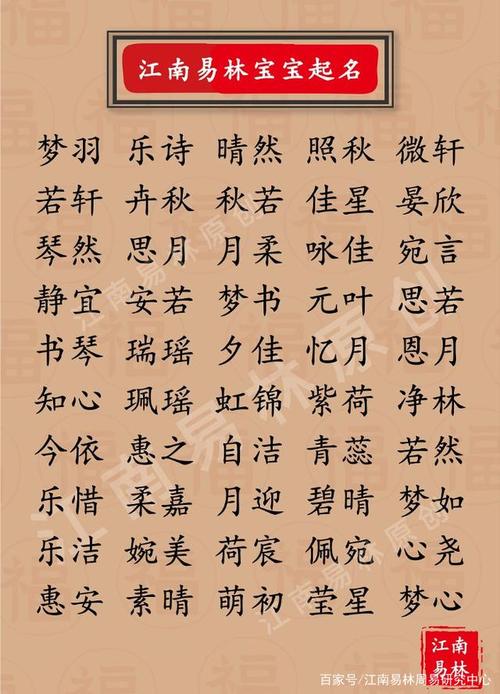 江南易林宝宝起名
梦羽 乐诗 晴然 照秋 微轩
若轩 卉秋 秋若 佳星 晏欣
琴然 思月 月柔 咏佳 宛言
静宜 安若 梦书 元叶 思若
书琴 瑞瑶 夕佳 忆月 恩月
知心 珮瑶 虹锦 紫荷 净林
今依 惠之 自洁 青蕊 若然
乐惜 柔嘉 月迎 碧晴 梦如
乐洁 婉美 荷宸 佩宛 心尧
惠安 素晴 萌初 莹星 梦心
江南易林原创
江南易林原创
江南
易林
百家号/江南易林周易研究中心